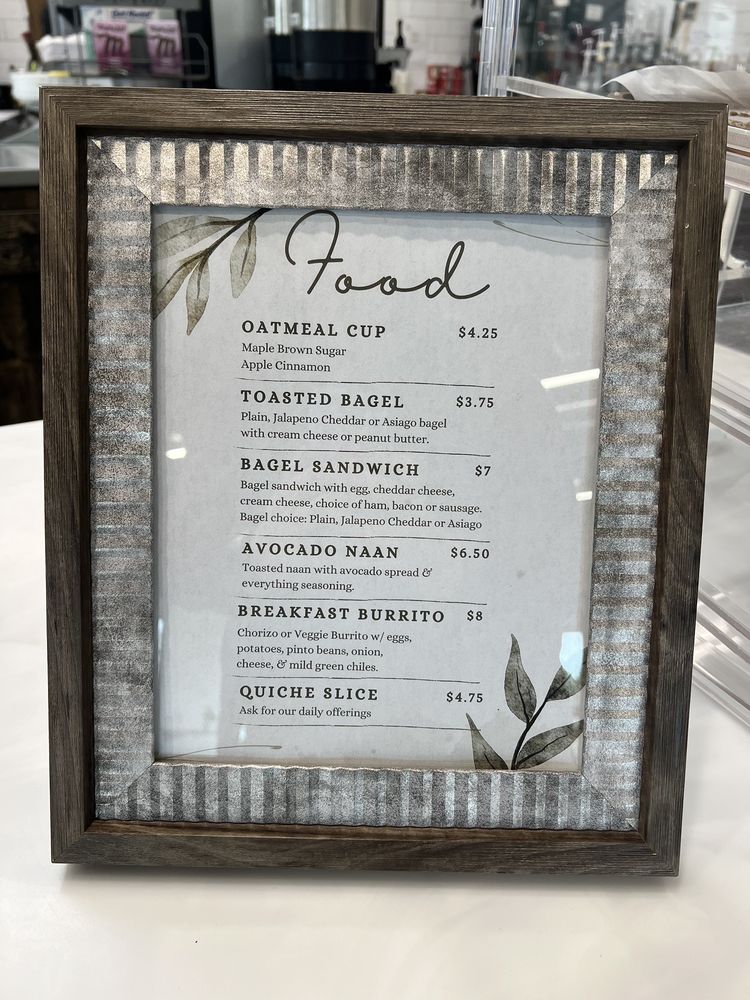 Food
OATMEAL CUP $4.25
Maple Brown Sugar
Apple Cinnamon
TOASTED BAGEL $3.75
Plain, Jalapeno Cheddar or Asiago bagel
with cream cheese or peanut butter.
BAGEL SANDWICH $7
Bagel sandwich with egg, cheddar cheese,
cream cheese, choice of ham, bacon or sausage.
Bagel choice: Plain, Jalapeno Cheddar or Asiago
AVOCADO NAAN $6.50
Toasted naan with avocado spread &
everything seasoning.
BREAKFAST BURRITO $8
Chorizo or Veggie Burrito w/ eggs,
potatoes, pinto beans, onion,
cheese, & mild green chiles.
QUICHE SLICE $4.75
Ask for our daily offerings